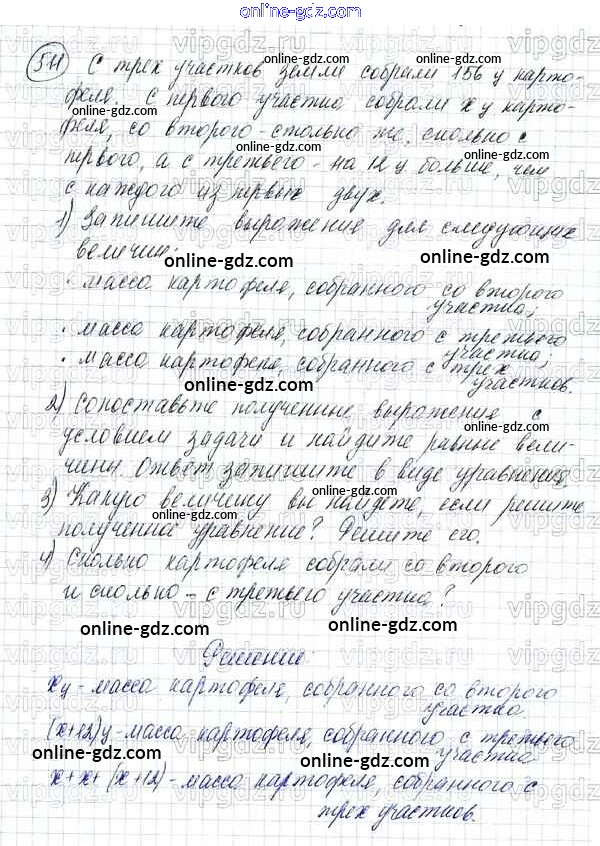 online-gdz.com
511 С трех участков земли собрали 156 ц карто-
феля, с первого участка собрали x ц карто-
феля, со второго - столько же, сколько с
первого, а с третьего - на 12 ц больше, чем
с каждого из первых двух.
1) Запишите выражения для следующих
величин:
· масса картофеля, собранного со второго
участка;
· масса картофеля, собранного с третьего
участка;
· масса картофеля, собранного с трех
участков.
2) Сопоставьте полученные выражения с
условием задачи и найдите равные вели-
чины. Ответ запишите в виде уравнения.
3) Какую величину вы найдете, если решите
полученное уравнение? Решите его.
4) Сколько картофеля собрали со второго
и сколько - с третьего участка?
Решение:
x ц - масса картофеля, собранного со второго
участка
(x+12) ц - масса картофеля, собранного с третьего
участка
x+x+(x+12) - масса картофеля, собранного с
трех участков.